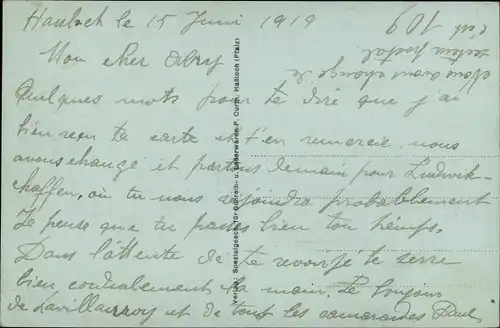 Hassloch le 15 Juni 1919
Mon cher
Quelques mots pour te dire que j'ai
bien reçu ta carte et t'en remercie, nous
avons change et partons demain pour Ludwik-
haffen, où tu nous rejoindra probablement
Je pense que tu passes bien ton temps.
Dans l'attente de te revoir je te serre
bien cordialement la main. Le bonjour
de Lavillauroy et de tous les camarades Paul
Nous avons change de
secteur postal
c'est 109
Verlag: Spezialgeschäft für Schreib- u. Lederwaren P. Curth, Haßloch (Pfalz)